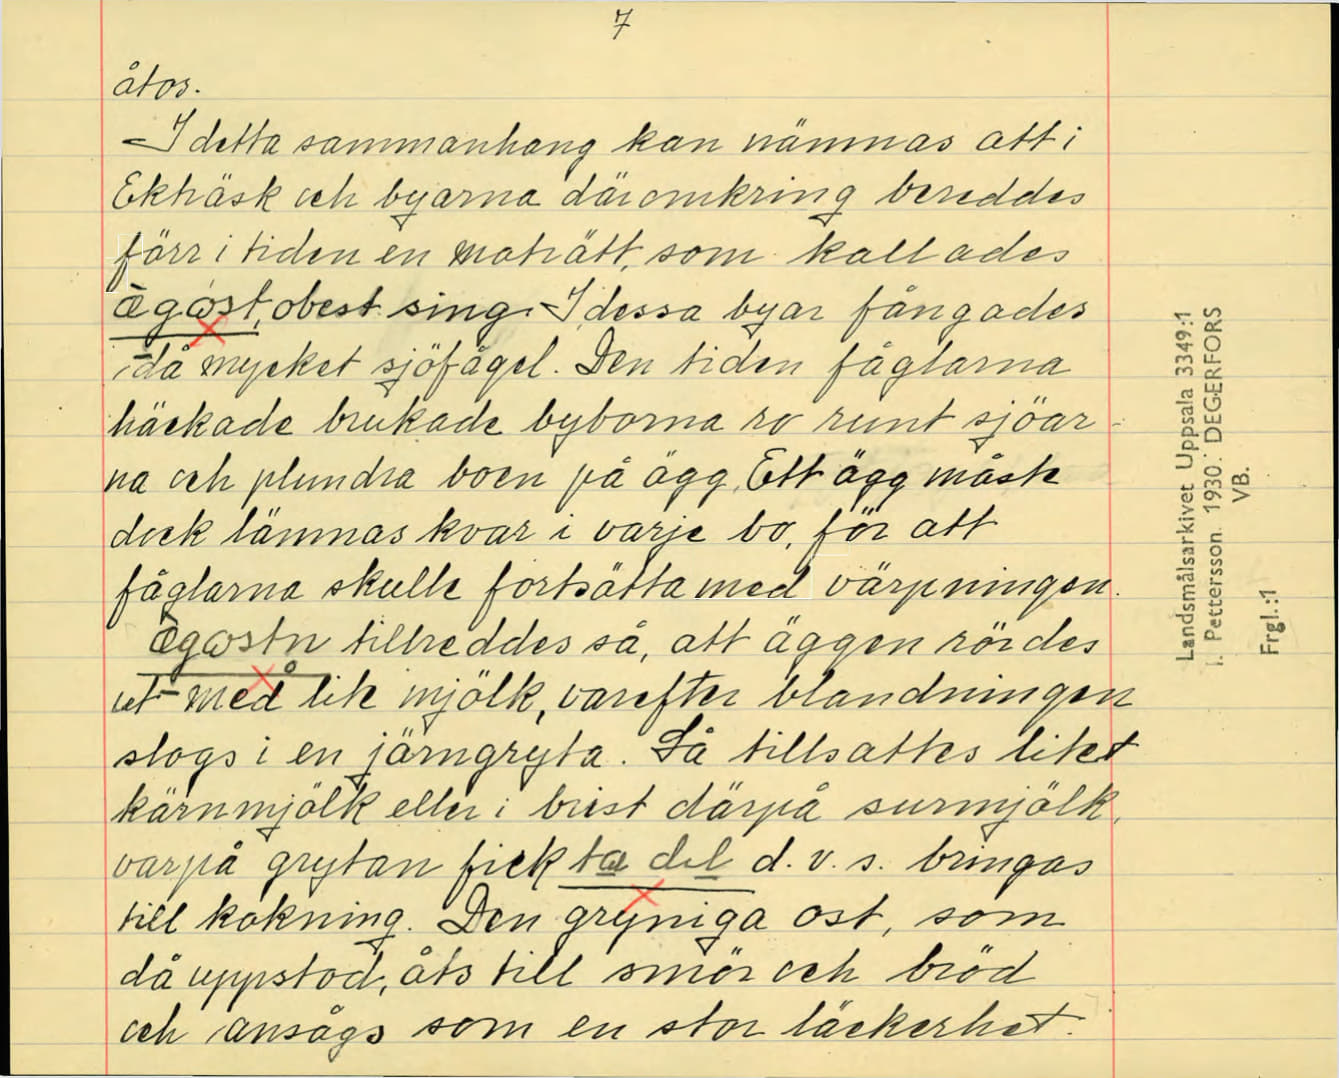 7
åtos.
– I detta sammanhang kan nämnas att i
Ekträsk och byarna däromkring bereddes
förr i tiden en maträtt, som kallades
ægωst, obest. sing. – I dessa byar fångades
då mycket sjöfågel. Den tiden fåglarna
häckade brukade byborna ro runt sjöar-
na och plundra boen på ägg. Ett ägg måste
dock lämnas kvar i varje bo, för att
fåglarna skulle fortsätta med värpningen.
Ægωstn tillreddes så, att äggen rördes
ut med lite mjölk, varefter blandningen
slogs i en järngryta. Så tillsattes litet
kärnmjölk eller i brist därpå surmjölk,
varpå grytan fick ta del d. v. s. bringas
till kokning. Den gryniga ost, som
då uppstod, åts till smör och bröd
och ansågs som en stor läckerhet.
Landsmålsarkivet Uppsala 3349:1
I. Pettersson. 1930. DEGERFORS
VB.
Frgl.:1